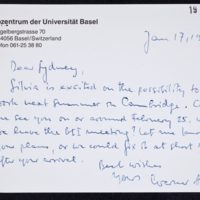 19
ozentrum der Universität Basel
gelbergstrasse 70
4056 Basel/Switzerland
fon 061-25 38 80
Jan. 17, 1
Dear Sydney,
Silvia is excited on the possibility to
work next summer in Cambridge. C
see you on or around February 25.
have the BTI meeting? Let me know
your plans, or we could fix it at short
after your arrival.
Best wishes
Yours
Werner